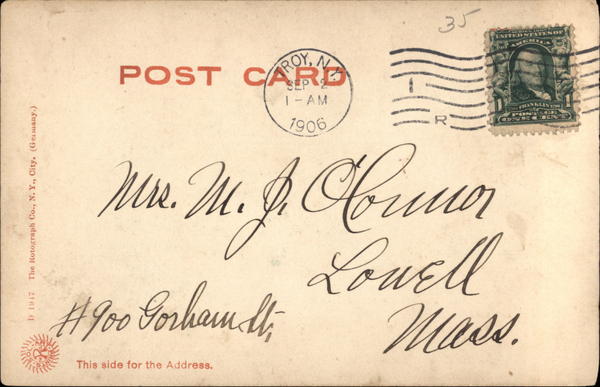 35
UNITED STATES OF
AMERICA
FRANKLIN
POSTAGE
ONE CENT
1 1
POST CARD
TROY, N.Y.
SEP 2
1-AM
1906
1
R
Mrs. M. J. O'Connor
Lowell
#900 Gorham St,
Mass.
D 1947 The Rotograph Co., N. Y., City. (Germany.)
This side for the Address.